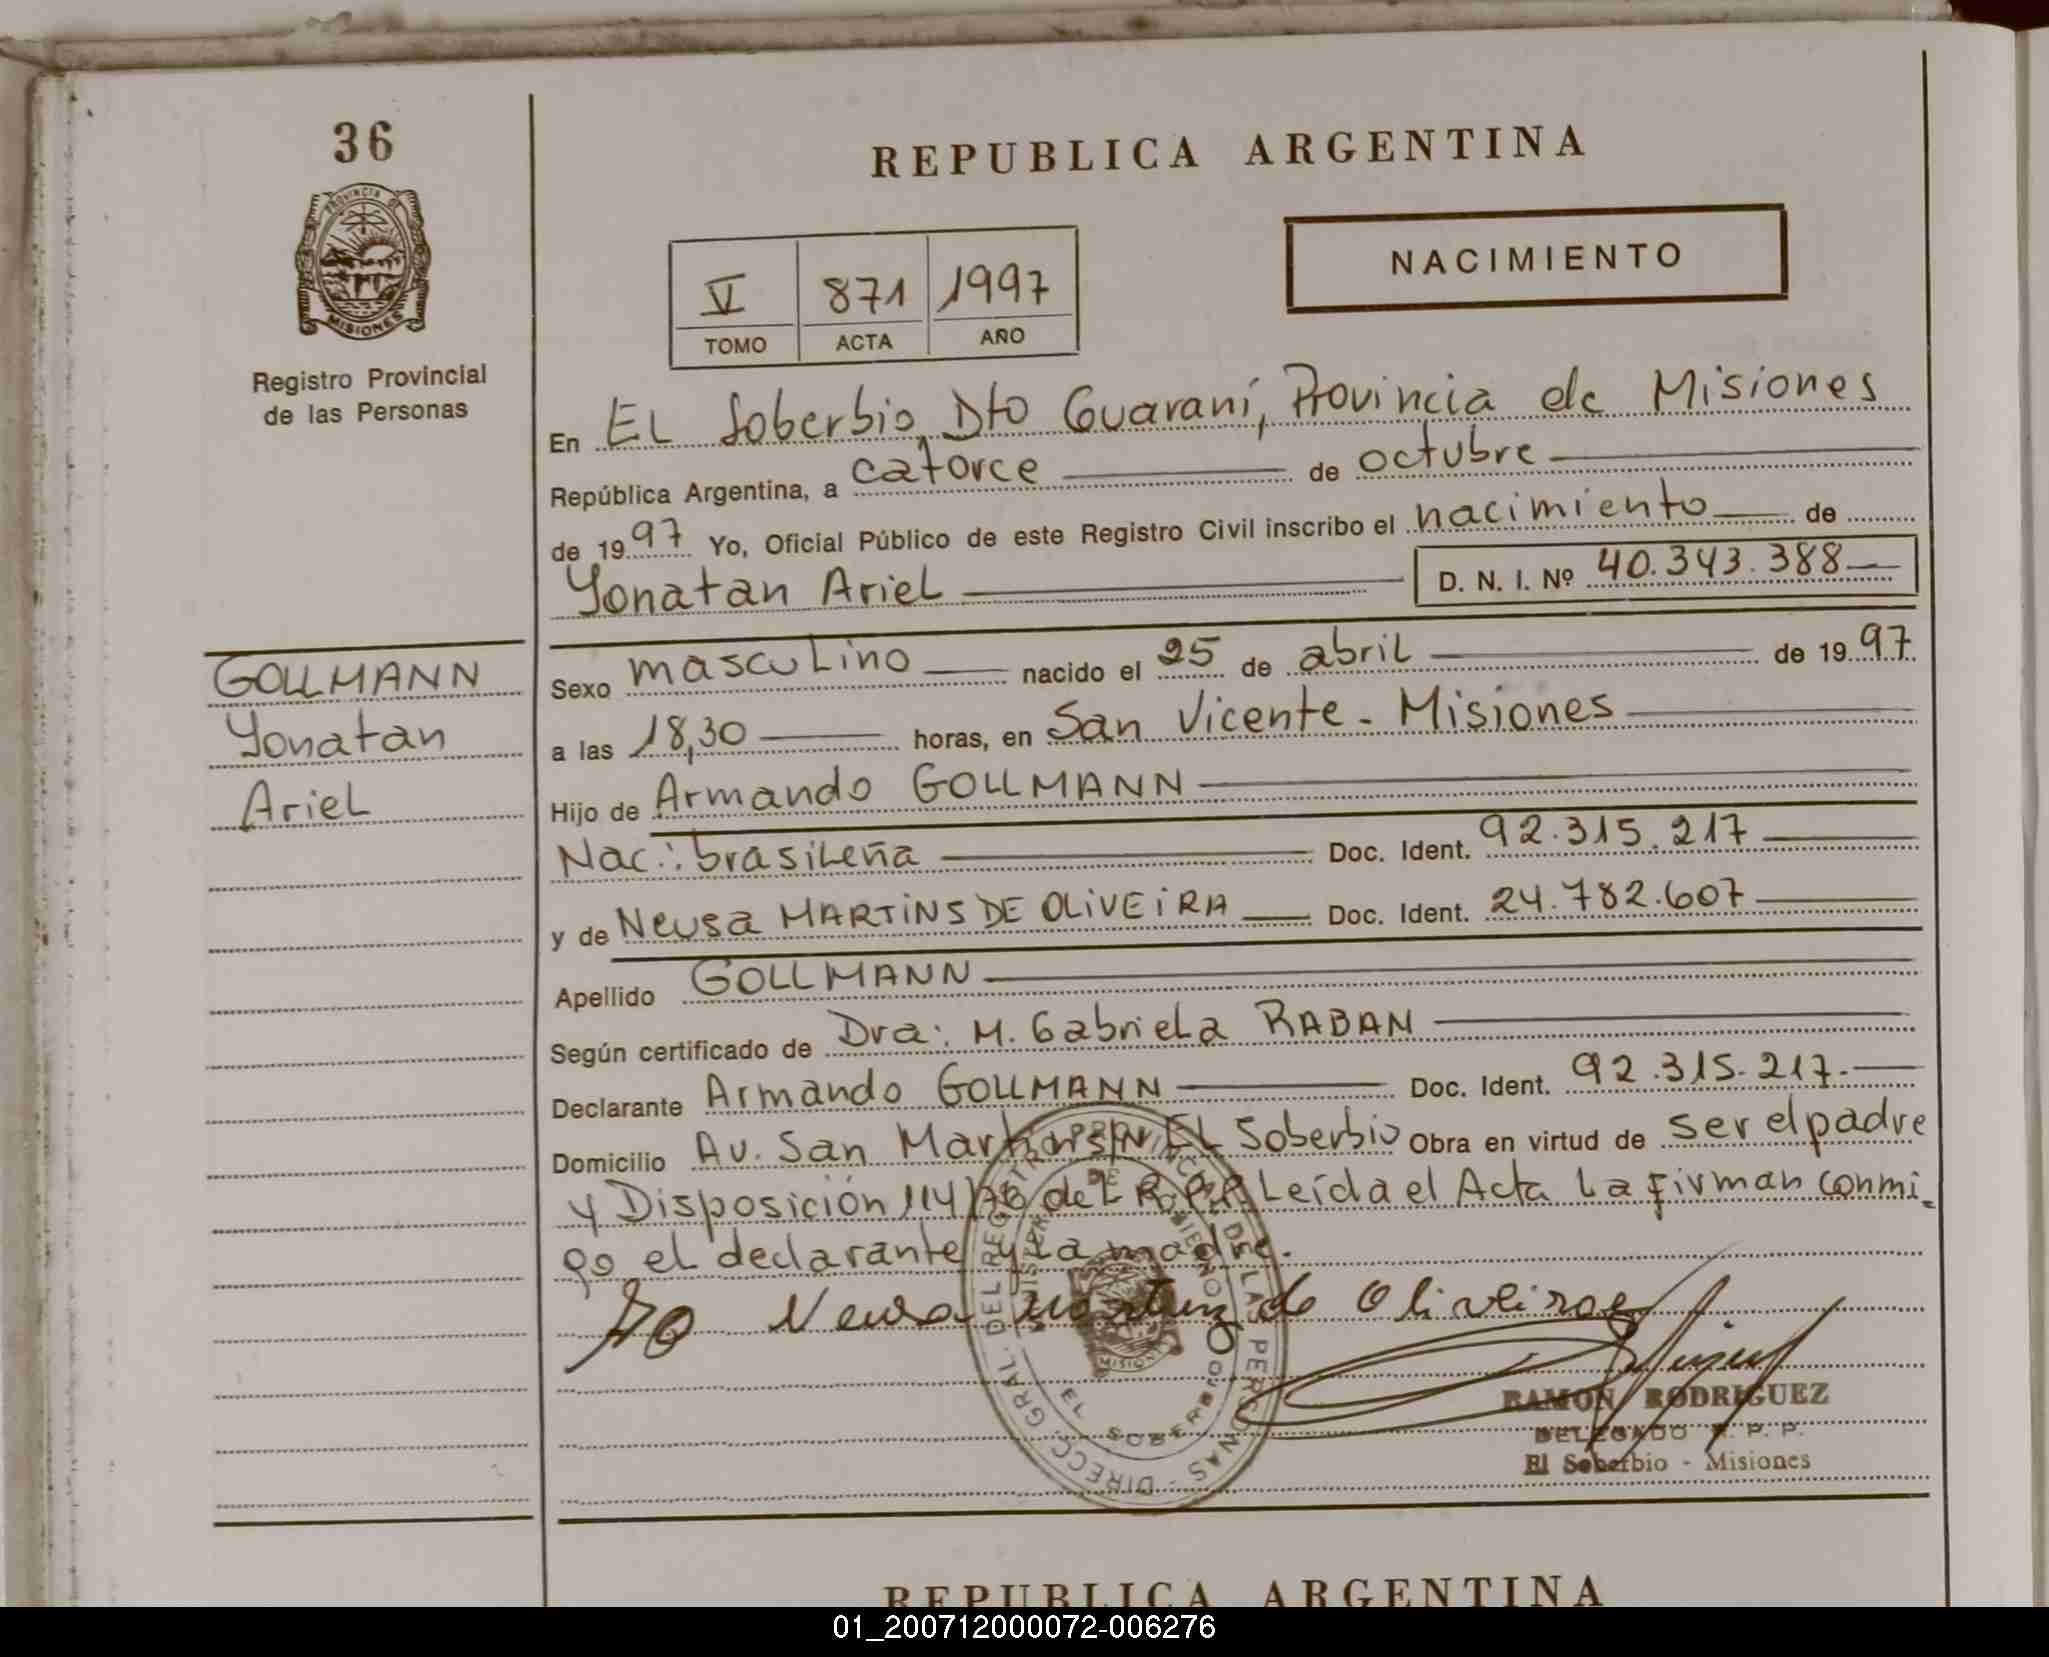 36
PROVINCIA DE
MISIONES
Registro Provincial
de las Personas
REPUBLICA ARGENTINA
V 871 1997
TOMO ACTA AÑO
NACIMIENTO
En EL Soberbio, Dto Guaraní, Provincia de Misiones
República Argentina, a catorce de octubre
de 1997 Yo, Oficial Público de este Registro Civil inscribo el nacimiento de
Yonatan Ariel D. N. I. Nº 40.343.388
GOLLMANN
Yonatan
Ariel
Sexo masculino nacido el 25 de abril de 1997
a las 18,30 horas, en San Vicente - Misiones
Hijo de Armando GOLLMANN
Nac.: brasileña Doc. Ident. 92.315.217
y de Neusa MARTINS DE OLIVEIRA Doc. Ident. 24.782.607
Apellido GOLLMANN
Según certificado de Dra: M. Gabriela RABAN
Declarante Armando GOLLMANN Doc. Ident. 92.315.217.
Domicilio Av. San Martín s/N EL Soberbio Obra en virtud de ser el padre
y Disposición 114/76 del R.P.P. Leída el Acta la firman conmi-
go el declarante y la madre.
Neusa de Oliveira
DIRECC. GRAL. DEL REGISTRO PROVINCIAL DE LAS PERSONAS
MINISTERIO DE GOBIERNO
MISIONES
EL SOBERBIO
RAMON RODRIGUEZ
DELEGADO R. P. P.
El Soberbio - Misiones
REPUBLICA ARGENTINA
01_200712000072-006276